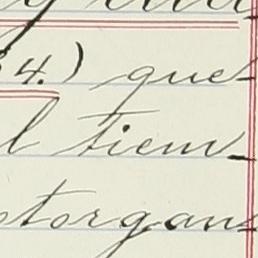 4.) que
l tiem-
otorgan